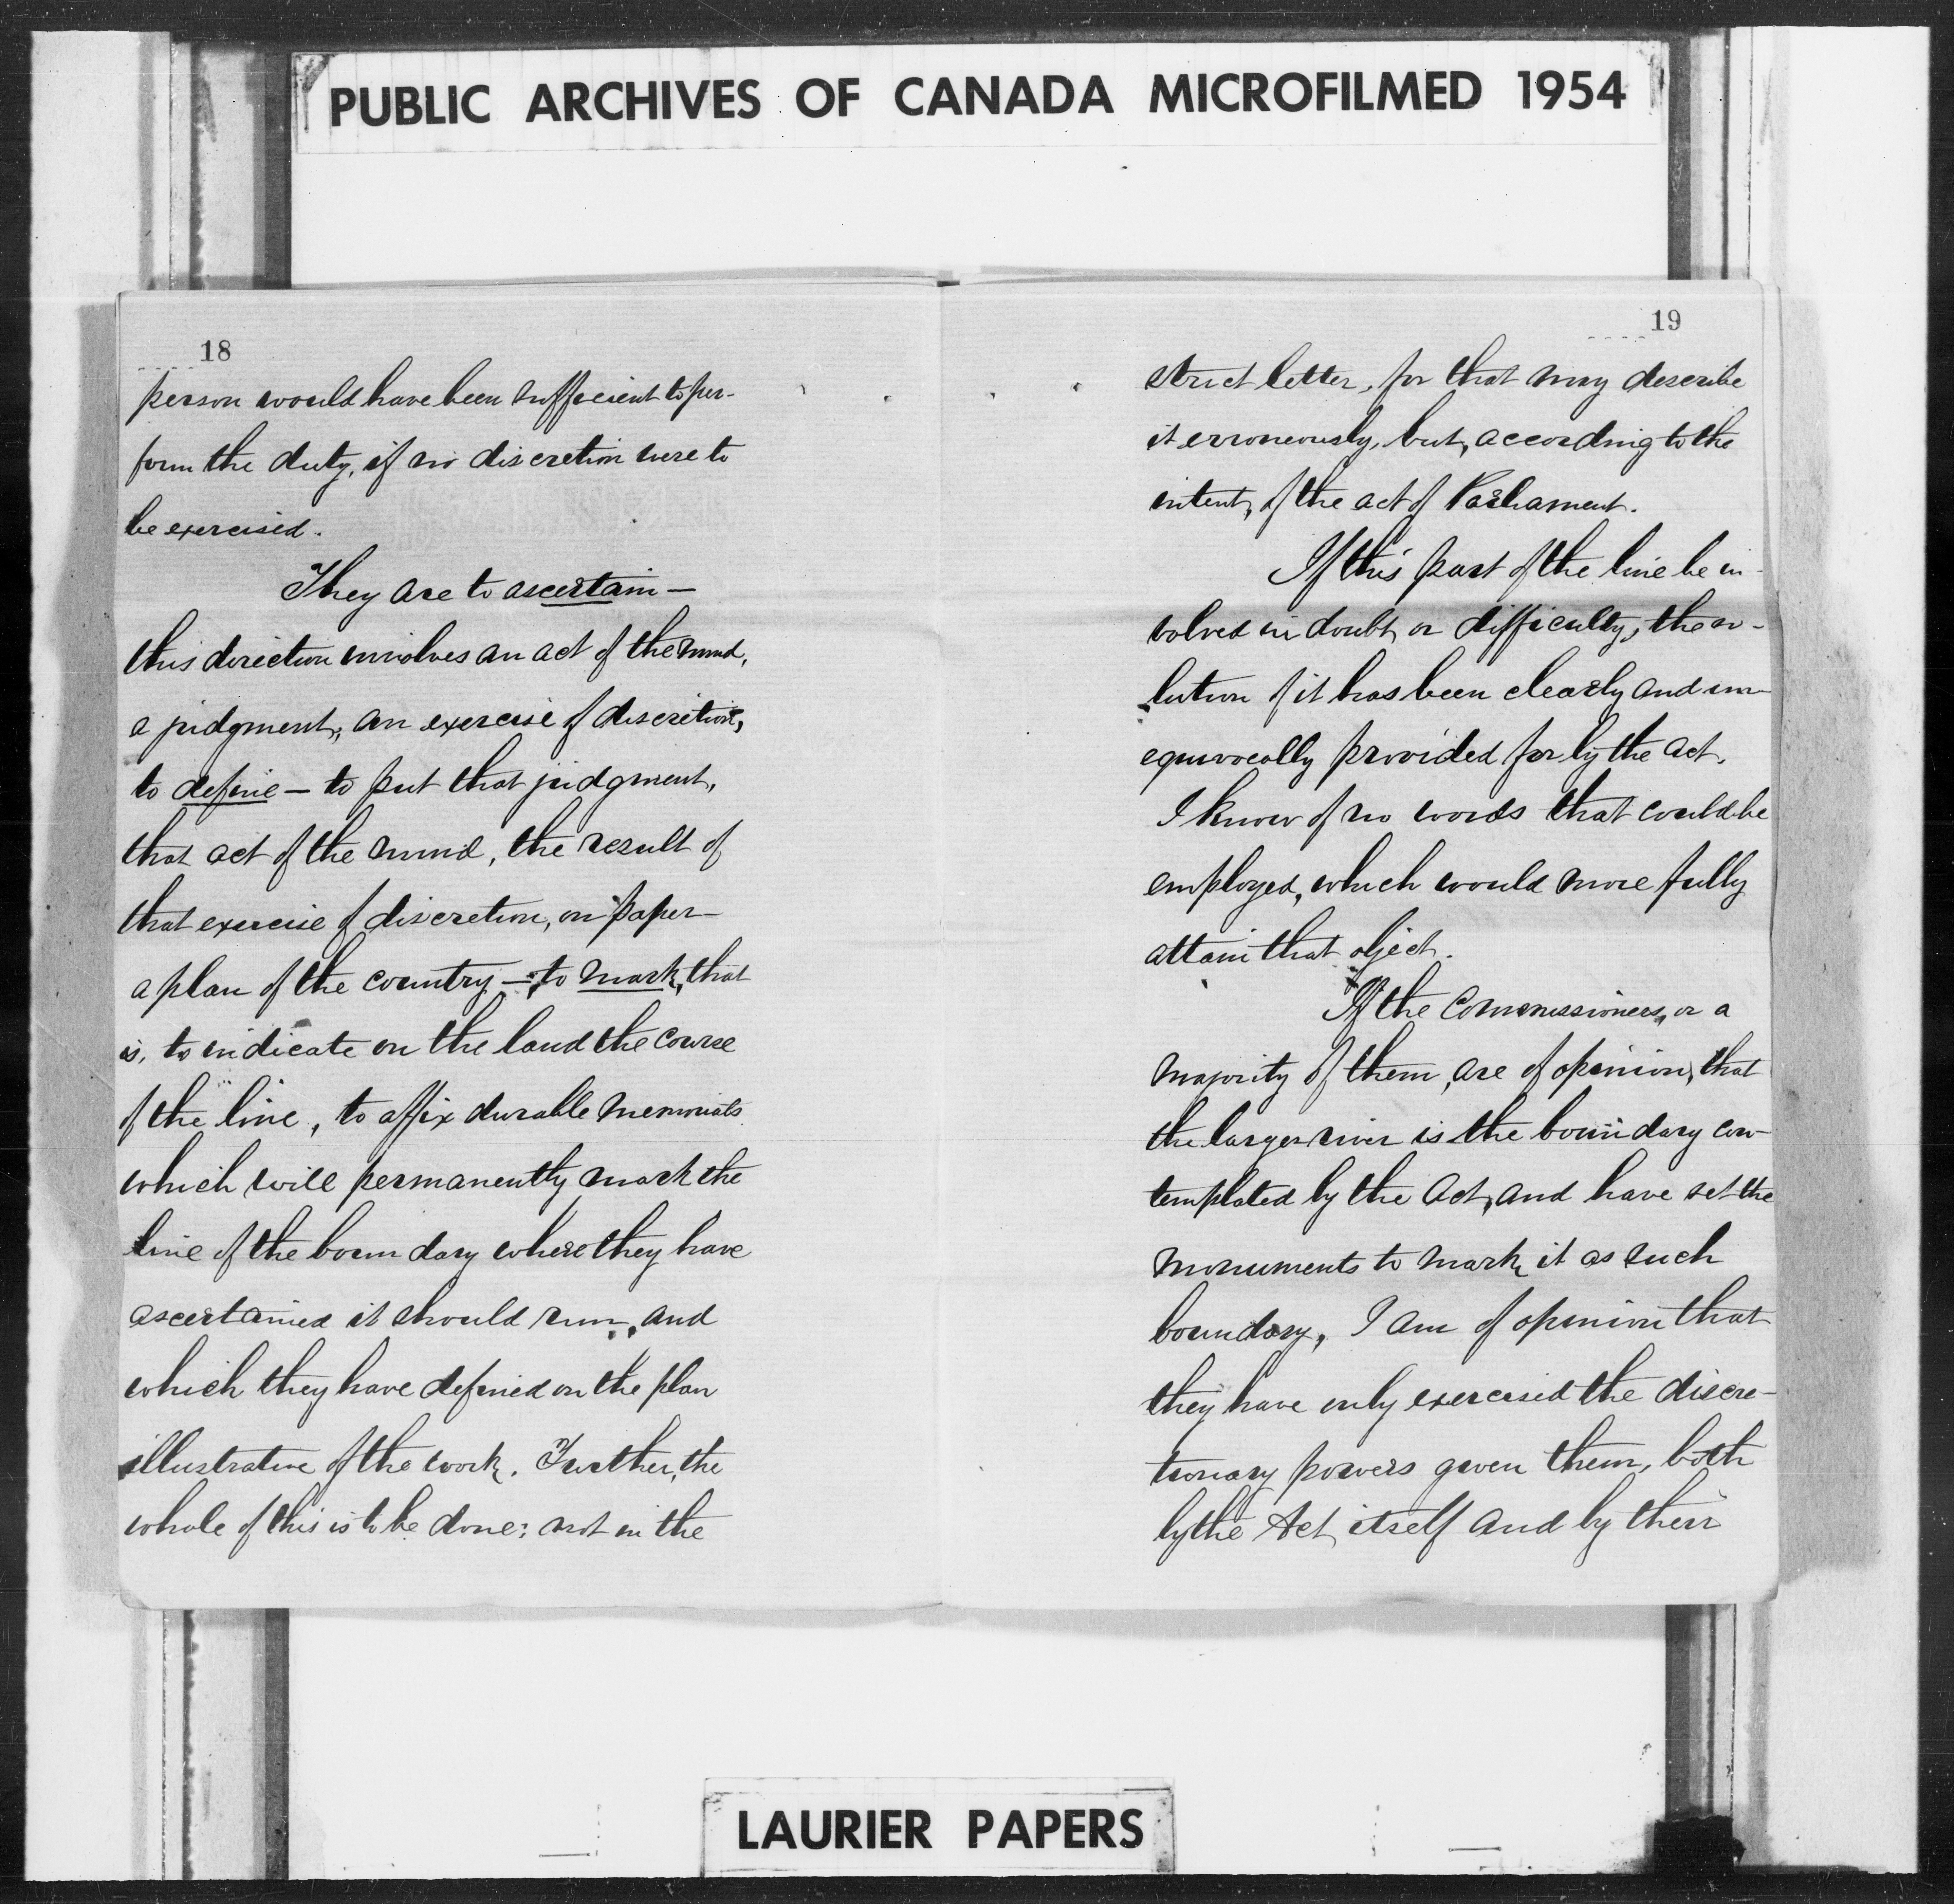 PUBLIC ARCHIVES OF CANADA MICROFILMED 1954
18
person would have been sufficient to per-
form the duty, if no discretion were to
be exercised.
They are to ascertain —
this direction involves an act of the mind,
a judgment, an exercise of discretion,
to define — to put that judgment,
that act of the mind, the result of
that exercise of discretion, on paper —
a plan of the country — to mark, that
is, to indicate on the land the course
of the line, to affix durable memorials
which will permanently mark the
line of the boundary where they have
ascertained it should run, and
which they have defined on the plan
illustrative of the work. Further, the
whole of this is to be done; not in the
19
strict letter, for that may describe
it erroneously, but, according to the
intent, of the act of Parliament.
If this part of the line be in-
volved in doubt, or difficulty, the so-
lution of it has been clearly and un-
equivocally provided for by the act.
I know of no words that could be
employed, which would more fully
attain that object.
If the Commissioners, or a
majority of them, are of opinion, that
the larger river is the boundary con-
templated by the Act, and have set the
monuments to mark it as such
boundary, I am of opinion that
they have only exercised the discre-
tionary powers given them, both
by the Act itself and by their
LAURIER PAPERS